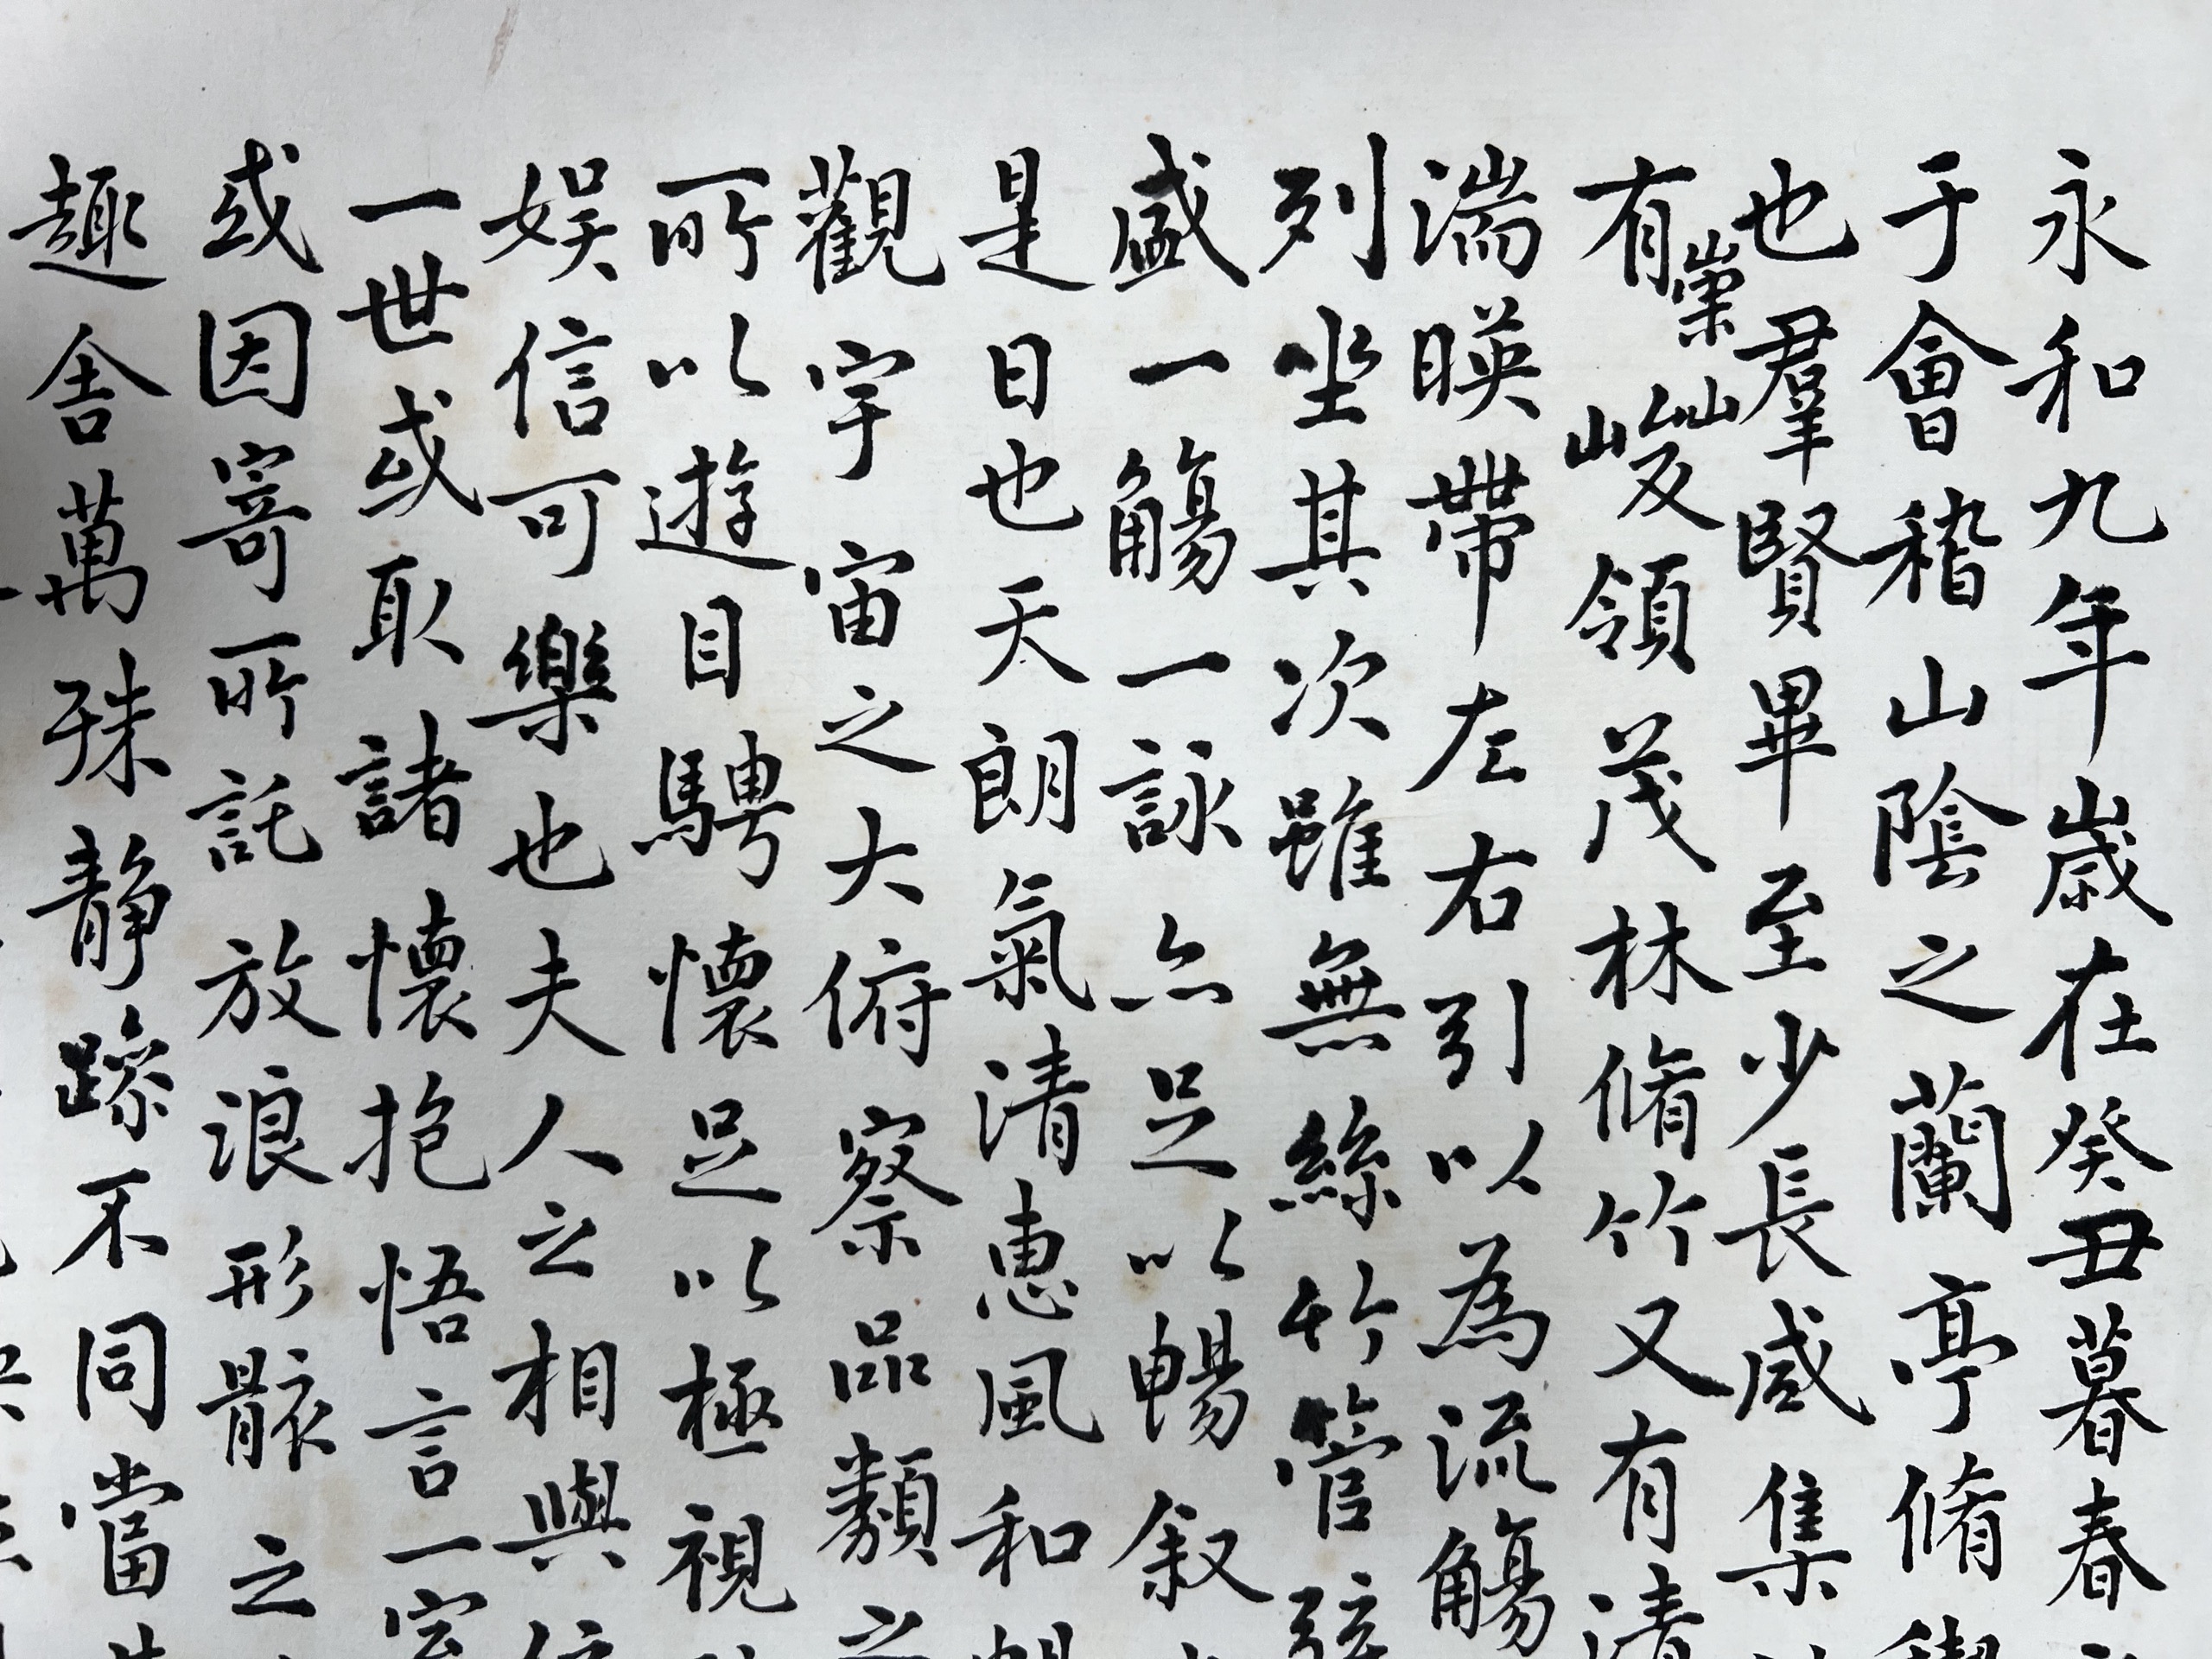 永和九年歲在癸丑暮春
于會稽山陰之蘭亭脩禊
也羣賢畢至少長咸集
有崇山峻領茂林脩竹又有清
湍暎帶左右引以為流觴
列坐其次雖無絲竹管弦
盛一觴一詠亦足以暢敘
是日也天朗氣清惠風和暢
觀宇宙之大俯察品類之
所以遊目騁懷足以極視
娛信可樂也夫人之相與
一世或取諸懷抱悟言一室
或因寄所託放浪形骸之
趣舍萬殊靜躁不同當